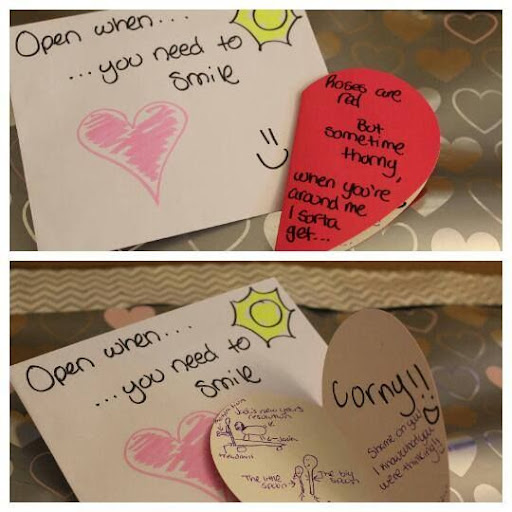 Open when...
...you need to
smile
Roses are
red
But
sometime
thorny,
when you're
around me
I sorta
get...
Open when...
...you need to
smile
Corny!!
Shame on you
I know what you
were thinking!!
new years
resolution
The little
spoon
The big